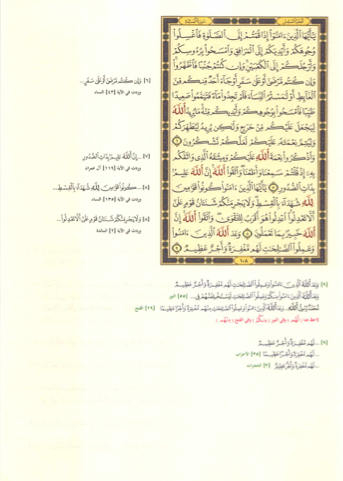 يَٰٓأَيُّهَا ٱلَّذِينَ ءَامَنُوٓا۟ إِذَا قُمْتُمْ إِلَى ٱلصَّلَوٰةِ فَٱغْسِلُوا۟
وُجُوهَكُمْ وَأَيْدِيَكُمْ إِلَى ٱلْمَرَافِقِ وَٱمْسَحُوا۟ بِرُءُوسِكُمْ
وَأَرْجُلَكُمْ إِلَى ٱلْكَعْبَيْنِ وَإِن كُنتُمْ جُنُبًا فَٱطَّهَّرُوا۟
وَإِن كُنتُم مَّرْضَىٰٓ أَوْ عَلَىٰ سَفَرٍ أَوْ جَآءَ أَحَدٌ مِّنكُم مِّنَ
ٱلْغَآئِطِ أَوْ لَٰمَسْتُمُ ٱلنِّسَآءَ فَلَمْ تَجِدُوا۟ مَآءً فَتَيَمَّمُوا۟ صَعِيدًا
طَيِّبًا فَٱمْسَحُوا۟ بِوُجُوهِكُمْ وَأَيْدِيكُم مِّنْهُ مَا يُرِيدُ ٱللَّهُ
لِيَجْعَلَ عَلَيْكُم مِّنْ حَرَجٍ وَلَٰكِن يُرِيدُ لِيُطَهِّرَكُمْ
وَلِيُتِمَّ نِعْمَتَهُۥ عَلَيْكُمْ لَعَلَّكُمْ تَشْكُرُونَ ٦
وَٱذْكُرُوا۟ نِعْمَةَ ٱللَّهِ عَلَيْكُمْ وَمِيثَٰقَهُ ٱلَّذِى وَاثَقَكُم
بِهِۦٓ إِذْ قُلْتُمْ سَمِعْنَا وَأَطَعْنَا وَٱتَّقُوا۟ ٱللَّهَ إِنَّ ٱللَّهَ عَلِيمٌۢ
بِذَاتِ ٱلصُّدُورِ ٧ يَٰٓأَيُّهَا ٱلَّذِينَ ءَامَنُوا۟ كُونُوا۟ قَوَّٰمِينَ
لِلَّهِ شُهَدَآءَ بِٱلْقِسْطِ وَلَا يَجْرِمَنَّكُمْ شَنَـَٔانُ قَوْمٍ عَلَىٰٓ
أَلَّا تَعْدِلُوا۟ ٱعْدِلُوا۟ هُوَ أَقْرَبُ لِلتَّقْوَىٰ وَٱتَّقُوا۟ ٱللَّهَ إِنَّ
ٱللَّهَ خَبِيرٌۢ بِمَا تَعْمَلُونَ ٨ وَعَدَ ٱللَّهُ ٱلَّذِينَ ءَامَنُوا۟
وَعَمِلُوا۟ ٱلصَّٰلِحَٰتِ لَهُم مَّغْفِرَةٌ وَأَجْرٌ عَظِيمٌ ٩
١٠٨
[٦] وَإِن كُنتُم مَّرْضَىٰٓ أَوْ عَلَىٰ سَفَرٍ...
وردت في الآية [٤٣] النساء
[٧] ...إِنَّ ٱللَّهَ عَلِيمٌۢ بِذَاتِ ٱلصُّدُورِ
وردت في الآية [١١٩] آل عمران
[٨] ...كُونُوا۟ قَوَّٰمِينَ لِلَّهِ شُهَدَآءَ بِٱلْقِسْطِ...
وردت في الآية [١٣٥] النساء
[٨] وَلَا يَجْرِمَنَّكُمْ شَنَـَٔانُ قَوْمٍ عَلَىٰٓ أَلَّا تَعْدِلُوا۟...
وردت في الآية [٢] المائدة
[٩] وَعَدَ ٱللَّهُ ٱلَّذِينَ ءَامَنُوا۟ وَعَمِلُوا۟ ٱلصَّٰلِحَٰتِ لَهُم مَّغْفِرَةٌ وَأَجْرٌ عَظِيمٌ
وَعَدَ ٱللَّهُ ٱلَّذِينَ ءَامَنُوا۟ مِنكُمْ وَعَمِلُوا۟ ٱلصَّٰلِحَٰتِ لَيَسْتَخْلِفَنَّهُمْ فِى... [٥٥] النور
وَعَدَ ٱللَّهُ ٱلَّذِينَ ءَامَنُوا۟ وَعَمِلُوا۟ ٱلصَّٰلِحَٰتِ مِنْهُم مَّغْفِرَةً وَأَجْرًا عَظِيمًا [٢٩] الفتح
[٩] ...لَهُم مَّغْفِرَةٌ وَأَجْرٌ عَظِيمٌ
...لَهُم مَّغْفِرَةً وَأَجْرًا عَظِيمًا [٣٥] الأحزاب
...لَهُم مَّغْفِرَةٌ وَأَجْرٌ عَظِيمٌ [٣] الحجرات